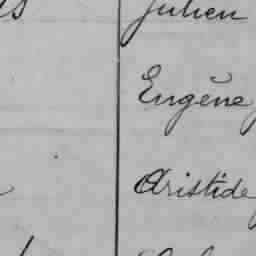 Julien
Eugène
Aristide